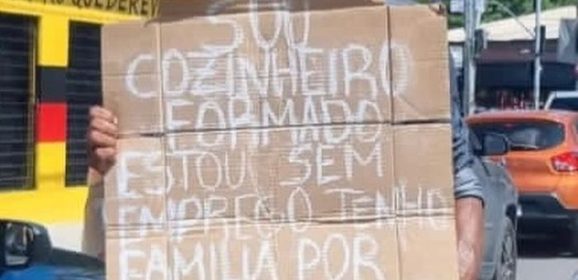 SOU
COZINHEIRO
FORMADO
ESTOU SEM
EMPREGO TENHO
FAMILIA POR